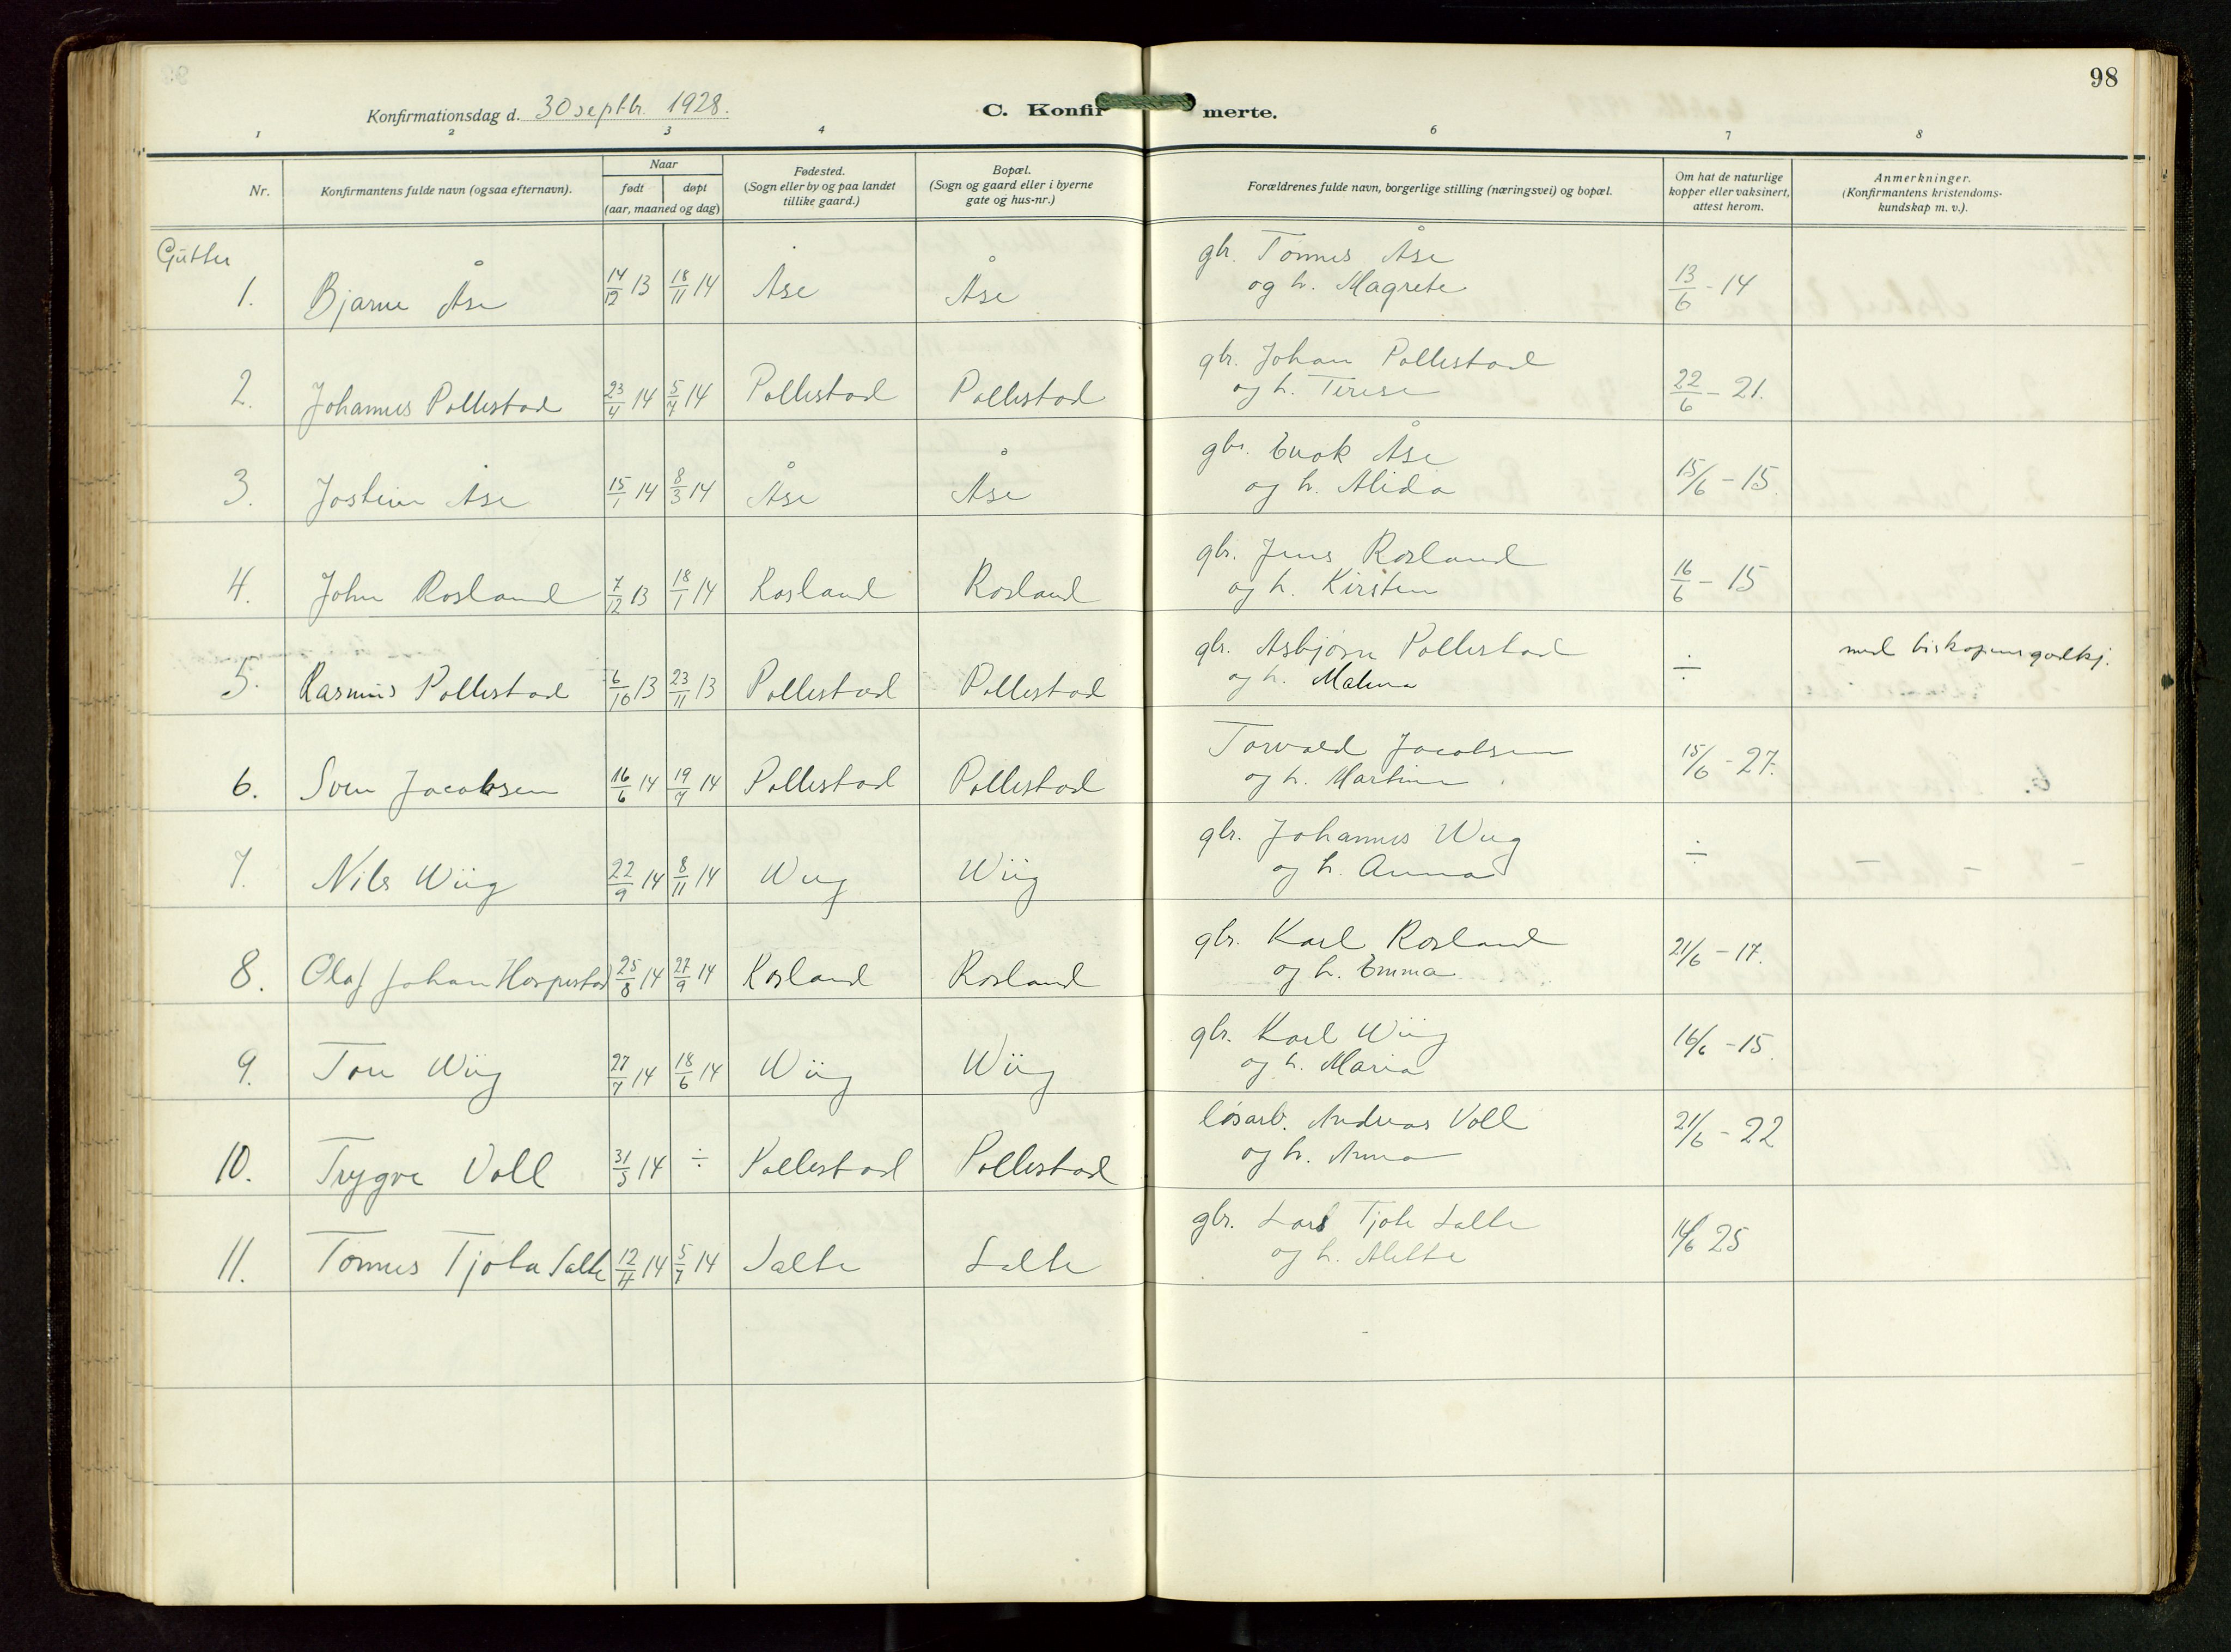 98
Konfirmationsdag d. 30 septbr. 1928.
C. Konfirmerte.
1 2 3 4 6 7 8
Nr.
Konfirmantens fulde navn (ogsaa efternavn).
Naar
født døpt
(aar, maaned og dag)
Fødested.
(Sogn eller by og paa landet
tillike gaard.)
Bopæl.
(Sogn og gaard eller i byerne
gate og hus-nr.)
Forældrenes fulde navn, borgerlige stilling (næringsvei) og bopæl.
Om hat de naturlige
kopper eller vaksinert,
attest herom.
Anmerkninger.
(Konfirmantens kristendoms-
kundskap m. v.).
Gutter
gbr. Tønnes Åse
1. Bjarne Åse 14/12 13 18/11 14 Åse Åse og h. Magrete 13/6 - 14
gbr. Johan Pollestad
2. Johannes Pollestad 23/4 14 5/7 14 Pollestad Pollestad og h. Terese 22/6 - 21.
gbr. Enok Åse
3. Jostein Åse 15/1 14 8/3 14 Åse Åse og h. Alida 15/6 - 15.
gbr. Jens Rosland
4. John Rosland 7/12 13 18/1 14 Rosland Rosland og h. Kirsten 16/6 - 15
gbr. Asbjørn Pollestad
5. Rasmus Pollestad 6/10 13 23/11 13 Pollestad Pollestad og h. Malena ÷ med biskopens godkj.
Torvald Jacobsen
6. Sven Jacobsen 16/6 14 19/7 14 Pollestad Pollestad og h. Martine 15/6 - 27.
gbr. Johannes Wiig
7. Nils Wiig 22/9 14 8/11 14 Wiig Wiig og h. Anna ÷
gbr. Karl Rosland
8. Olaf Johan Horpestad 25/8 14 27/9 14 Rosland Rosland og h. Emma 21/6 - 17.
gbr. Karl Wiig
9. Tore Wiig 27/4 14 18/6 14 Wiig Wiig og h. Maria 16/6 - 15.
løsarb. Andreas Voll
10. Trygve Voll 31/5 14 ÷ Pollestad Pollestad og h. Anna 21/6 - 22
gbr. Lars Tjøta Salte
11. Tønnes Tjøta Salte 12/4 14 5/7 14 Salte Salte og h. Alette 16/6 25